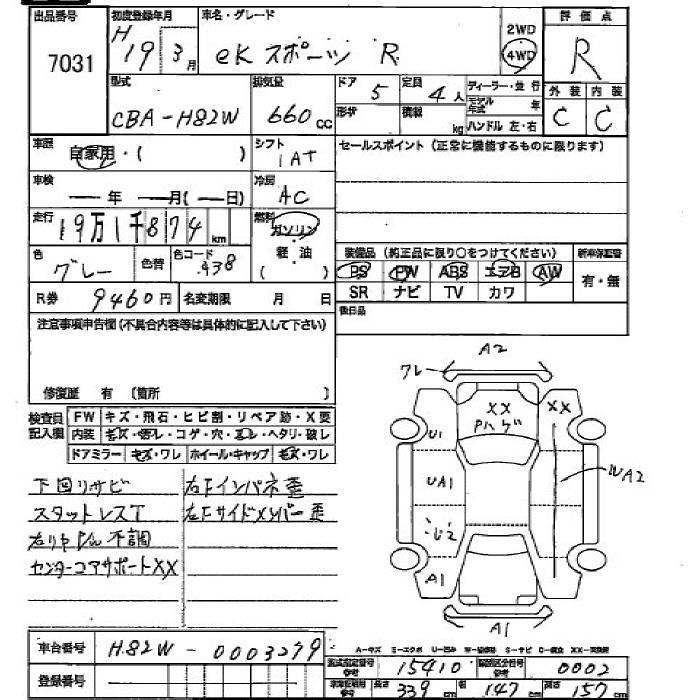 出品番号 初度登録年月 車名・グレード 2WD 評価点
7031 H19 3月 eK スポーツ R 4WD R
型式 排気量 ドア 定員 ディーラー・並行 外装 内装
CBA-H82W 660cc 5 4人 モデル年式 年 C C
形状 積載 kg ハンドル 左・右
車歴 自家用・( ) シフト 1AT セールスポイント(正常に機能するものに限ります)
車検 年 月( 日) 冷房 AC
走行 19万1千874km 燃料 ガソリン
色 グレー 色替 色コード 438 軽・油 ( )
装備品(純正品に限り○をつけてください) 新車保証書
PS PW ABS エアB AW 有・無
SR ナビ TV カワ
R券 9460円 名変期限 月 日 後日品
注意事項申告欄(不具合内容等は具体的に記入して下さい)
修復歴 有 〔箇所 〕
検査員記入欄 FW キズ・飛石・ヒビ割・リペア跡・X要
内装 キズ・汚レ・コゲ・穴・ヌレ・ヘタリ・破レ
ドアミラー キズ・ワレ ホイール・キャップ キズ・ワレ
下回リサビ 右Fインパネ歪
スタットレスT 左Fサイドメンバー歪
不調
センターコアサポートXX
ワレ A2
XX XX
Pハゲ
U1
UA1 A2
A1
A1
車台番号 H82W-0003279
登録番号
A-キズ E-エクボ U-凹ミ W-補修跡 S-サビ C-腐食 XX-交換済
型式指定番号 参考 15410 類別区分番号 参考 0002
参考 長さ 339cm 幅 147cm 高さ 157cm